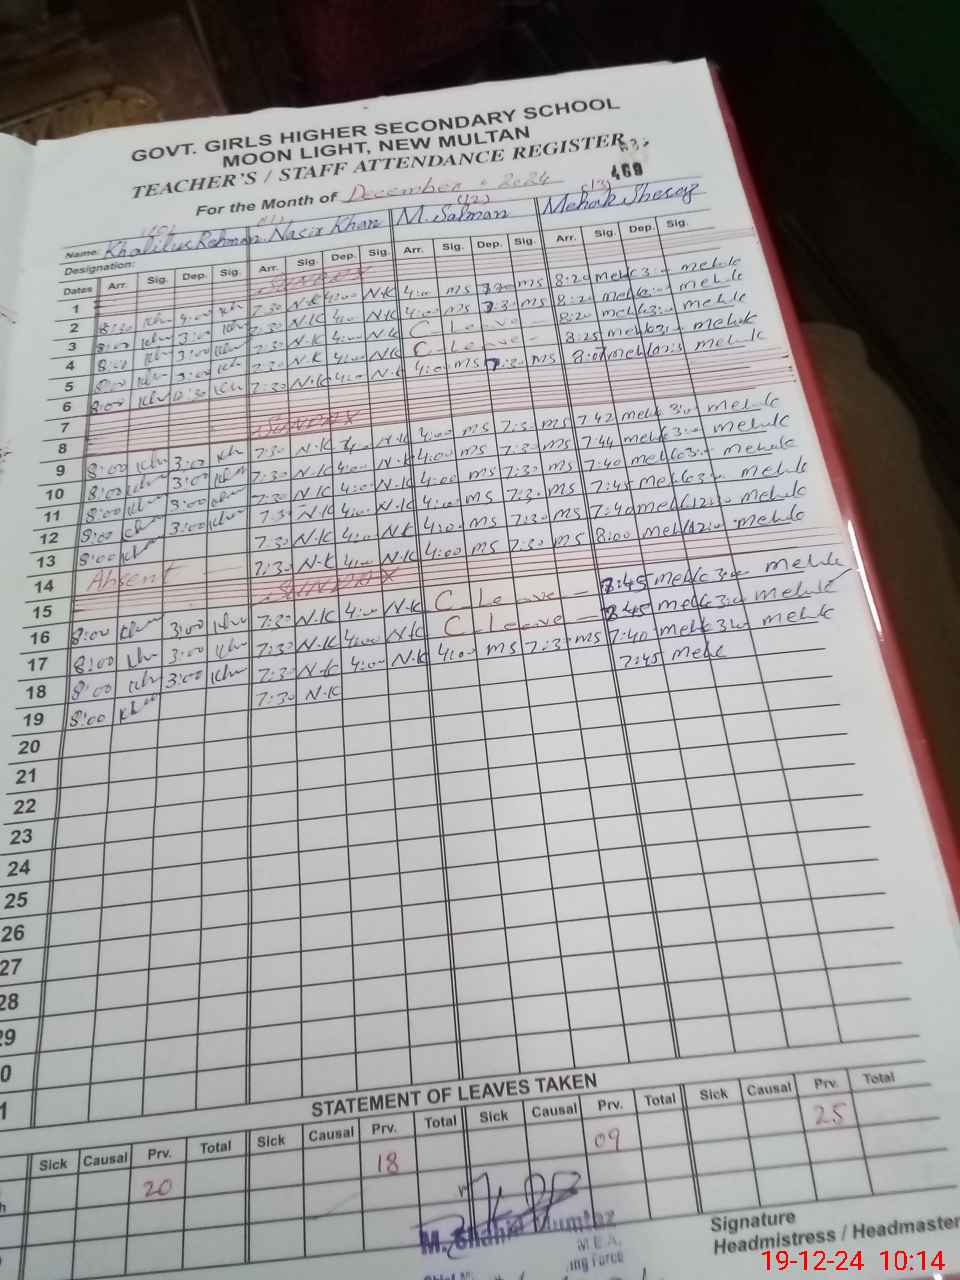 GOVT. GIRLS HIGHER SECONDARY SCHOOL
MOON LIGHT, NEW MULTAN
TEACHER'S / STAFF ATTENDANCE REGISTER
469
For the Month of December 2024
Name: Khalilur Rehman Nasir Khan M. Salman Mehak Sheraz
Designation:
Dates Arr. Sig. Dep. Sig. Arr. Sig. Dep. Sig. Arr. Sig. Dep. Sig. Arr. Sig. Dep. Sig.
1 SUNDAY
2 8:30 Kh 4:00 Kh 7:30 N.K 4:00 N.K 4:00 MS 7:30 MS 8:20 Mehk 3:00 Mehk
3 8:00 Kh 3:00 Kh 7:30 N.K 4:00 N.K 4:00 MS 7:30 MS 8:20 Mehk 3:00 Mehk
4 8:00 Kh 3:00 Kh 7:30 N.K 4:00 N.K C-Leave - 8:20 Mehk 3:00 Mehk
5 8:00 Kh 3:00 Kh 7:30 N.K 4:00 N.K C-Leave - 8:25 Mehk 3:00 Mehk
6 8:00 Kh 12:30 Kh 7:30 N.K 4:00 N.K 4:00 MS 7:30 MS 8:00 Mehk Mehk
7
8 SUNDAY
9 8:00 Kh 3:00 Kh 7:30 N.K 4:00 N.K 4:00 MS 7:30 MS 7:42 Mehk 3:00 Mehk
10 8:00 Kh 3:00 Kh 7:30 N.K 4:00 N.K 4:00 MS 7:30 MS 7:44 Mehk 3:00 Mehk
11 8:00 Kh 3:00 Kh 7:30 N.K 4:00 N.K 4:00 MS 7:30 MS 7:40 Mehk 3:00 Mehk
12 8:00 Kh 3:00 Kh 7:30 N.K 4:00 N.K 4:00 MS 7:30 MS 7:45 Mehk 3:00 Mehk
13 8:00 Kh 7:30 N.K 4:00 N.K 4:00 MS 7:30 MS 7:40 Mehk 12:30 Mehk
14 Absent 7:30 N.K 4:00 N.K 4:00 MS 7:30 MS 8:00 Mehk 12:00 Mehk
15 SUNDAY
16 8:00 Kh 3:00 Kh 7:30 N.K 4:00 N.K C-Leave - 7:45 Mehk 3:00 Mehk
17 8:00 Kh 3:00 Kh 7:30 N.K 4:00 N.K C-Leave - 8:45 Mehk 3:00 Mehk
18 8:00 Kh 3:00 Kh 7:30 N.K 4:00 N.K 4:00 MS 7:30 MS 7:40 Mehk 3:00 Mehk
19 8:00 Kh 7:30 N.K 7:45 Mehk
20
21
22
23
24
25
26
27
28
29
0
1
STATEMENT OF LEAVES TAKEN
Sick Causal Prv. Total Sick Causal Prv. Total Sick Causal Prv. Total Sick Causal Prv. Total
20 18 09 25
M. Shahid Mumtaz
M.E.A.
ing Force
Signature
Headmistress / Headmaster
19-12-24 10:14